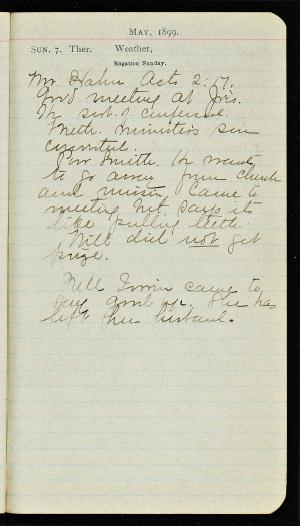 MAY, 1899.
SUN. 7. Ther. Weather,
Rogation Sunday.
Mr. Hahn Acts 2:17.
Good meeting at Jris.
In sut. of
Meth. minister's son
Smith. He wants
to go away from church
and minister came to
meeting but says its
like pulling teeth.
Will did not get
prize.
Nell Irwin came to
say goodbye. She has
left her husband.